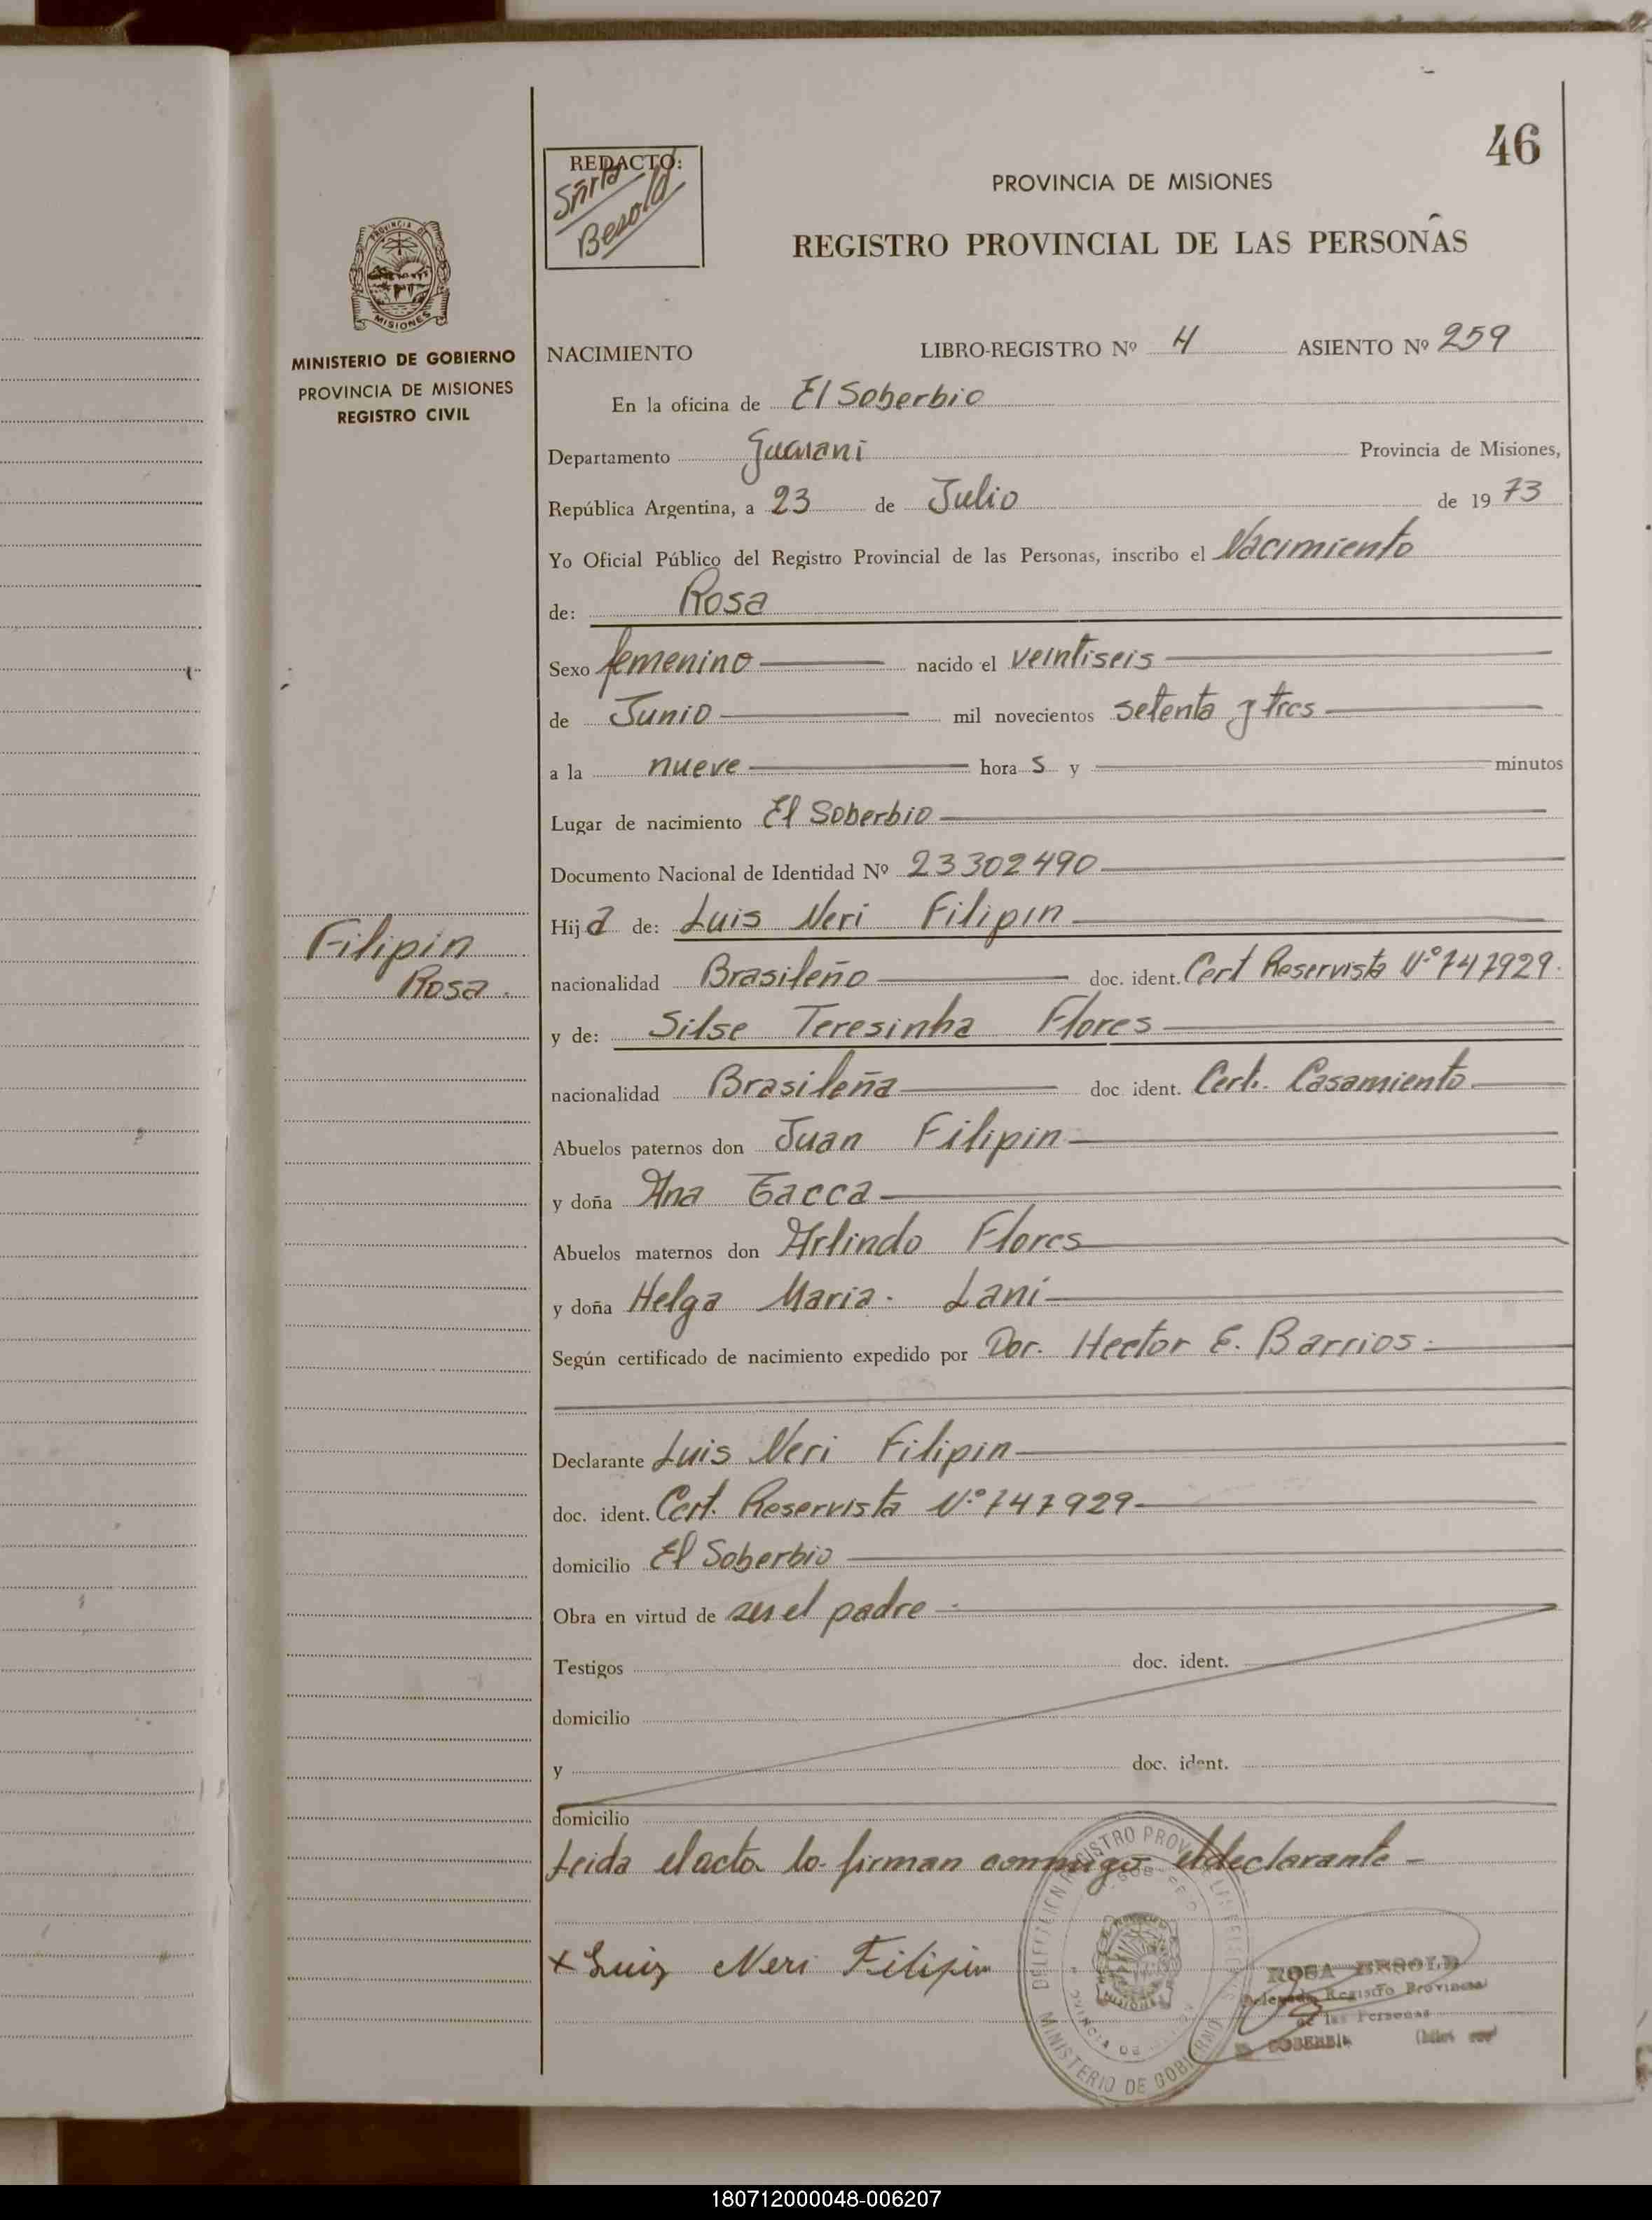 46
REDACTO:
Srita
Besold
PROVINCIA DE MISIONES
REGISTRO PROVINCIAL DE LAS PERSONAS
MISIONES
MINISTERIO DE GOBIERNO
PROVINCIA DE MISIONES
REGISTRO CIVIL
NACIMIENTO LIBRO-REGISTRO Nº 4 ASIENTO Nº 259
En la oficina de El Soberbio
Departamento Guarani Provincia de Misiones,
República Argentina, a 23 de Julio de 1973
Yo Oficial Público del Registro Provincial de las Personas, inscribo el Nacimiento
de: Rosa
Sexo femenino nacido el veintiseis
de Junio mil novecientos setenta y tres
a la nueve hora s y minutos
Lugar de nacimiento El Soberbio
Documento Nacional de Identidad Nº 23302490
Hija de: Luis Neri Filipin
Filipin
Rosa.
nacionalidad Brasileño doc. ident. Cert Reservista Nº 747929.
y de: Silse Teresinha Flores
nacionalidad Brasileña doc. ident. Cert. Casamiento
Abuelos paternos don Juan Filipin
y doña Ana Gacca
Abuelos maternos don Arlindo Flores
y doña Helga Maria. Lani
Según certificado de nacimiento expedido por Dor. Hector E. Barrios.
Declarante Luis Neri Filipin
doc. ident. Cert. Reservista Nº 747929
domicilio El Soberbio
Obra en virtud de ser el padre
Testigos doc. ident.
domicilio
y doc. ident.
domicilio
Leida el acta lo firman conmigo el declarante
x Luiz Neri Filipin
MINISTERIO DE GOBIERNO
ROSA BESOLD
Registro Provincial
de las Personas
SOBERBIO
180712000048-006207